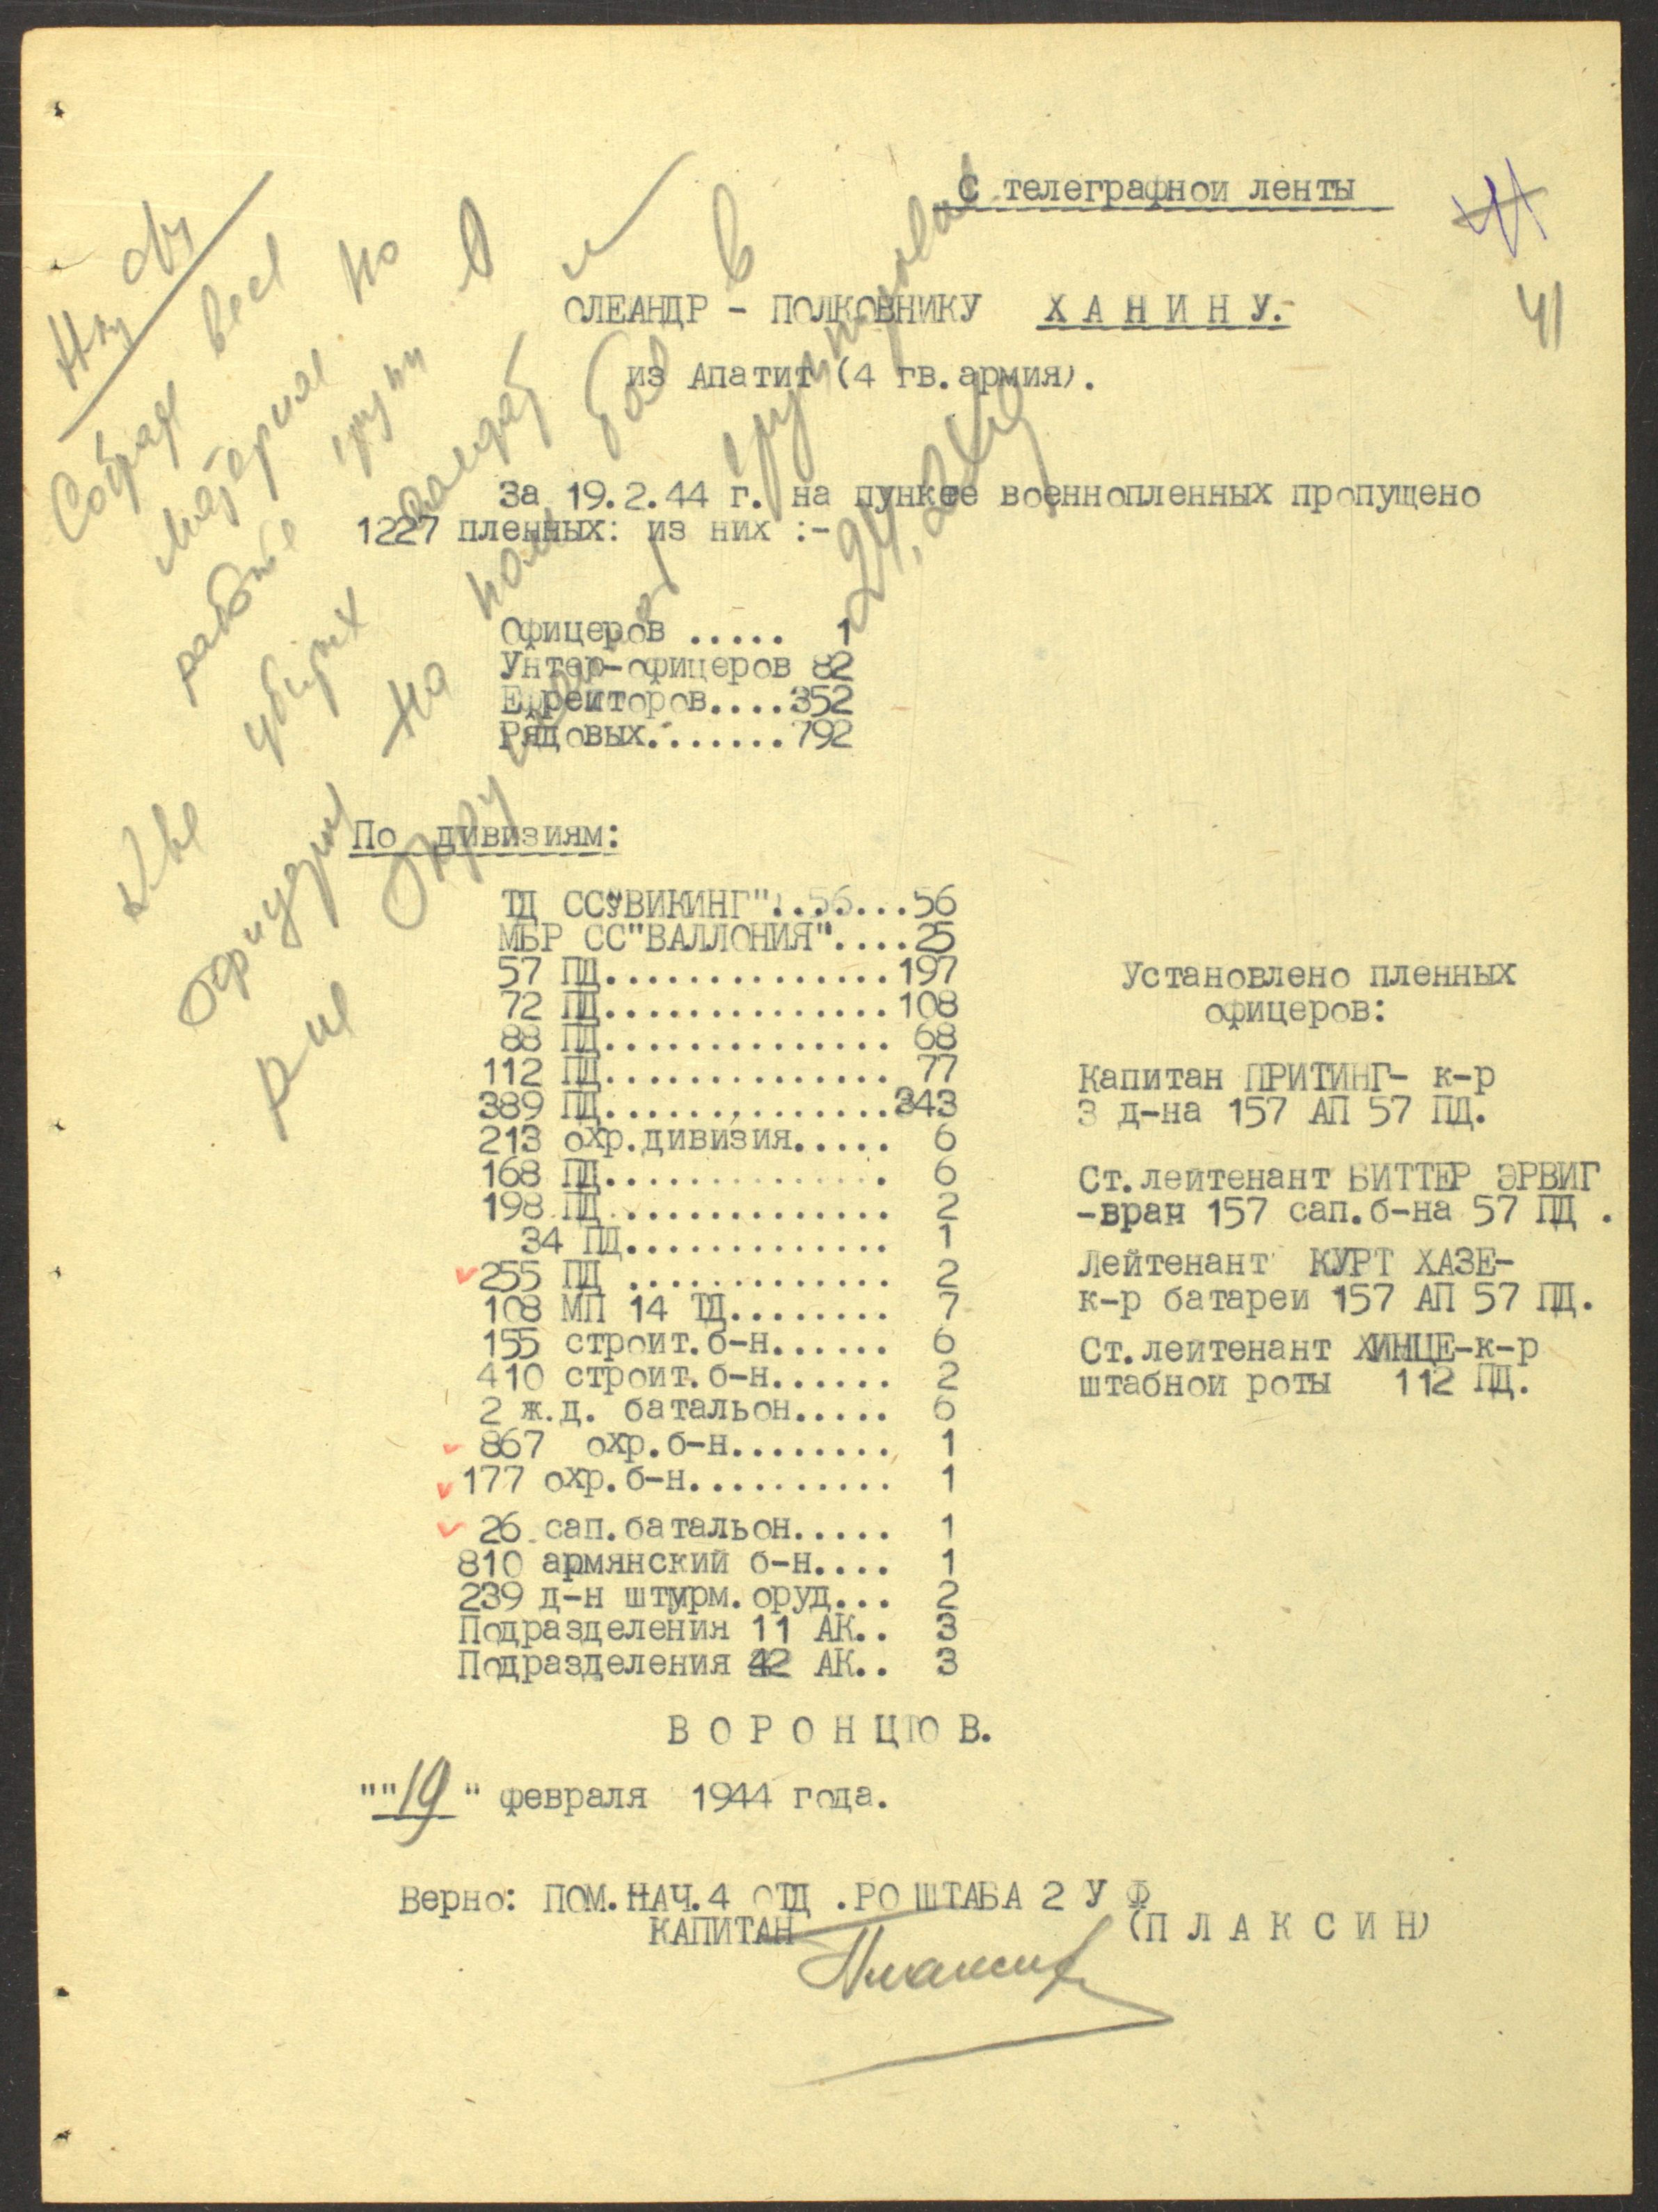 С телеграфной ленты
41
ОЛЕАНДР - ПОЛКОВНИКУ Х А Н И Н У.-
из Апатит (4 гв.армия).
За 19.2.44 г. на пункте военнопленных пропущено
1227 пленных: из них :-
Офицеров ..... 1
Унтер-офицеров 82
Ефрейторов....352
Рядовых.......792
По дивизиям:
ТД СС"ВИКИНГ".......56
МБР СС"ВАЛЛОНИЯ"....25
57 ПД...............197
72 ПД...............108
88 ПД............... 68
112 ПД............... 77
389 ПД...............343
213 охр.дивизия..... 6
168 ПД.............. 6
198 ПД.............. 2
34 ПД............. 1
255 ПД ............. 2
108 МП 14 ТД........ 7
155 строит.б-н...... 6
410 строит.б-н...... 2
2 ж.д. батальон..... 6
867 охр.б-н........ 1
177 охр.б-н.......... 1
26 сап.батальон..... 1
810 армянский б-н.... 1
239 д-н штурм.оруд... 2
Подразделения 11 АК.. 3
Подразделения 42 АК.. 3
Установлено пленных
офицеров:
Капитан ПРИТИНГ- к-р
3 д-на 157 АП 57 ПД.
Ст.лейтенант БИТТЕР ЭРВИГ
-врач 157 сап.б-на 57 ПД .
Лейтенант КУРТ ХАЗЕ-
к-р батареи 157 АП 57 ПД.
Ст.лейтенант ХИНЦЕ-к-р
штабной роты 112 ПД.
В О Р О Н Ц О В.
""19" февраля 1944 года.
Верно: ПОМ.НАЧ.4 ОТД .РО ШТАБА 2 У Ф
КАПИТАН (П Л А К С И Н)
Собрать весь
материал по
работе групп
убитых
на поле боя в
24.2.44